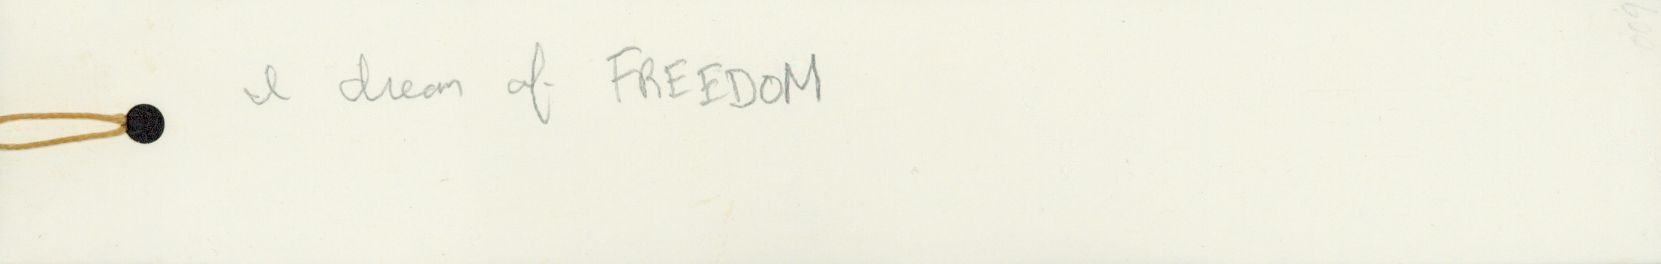 I dream of FREEDOM